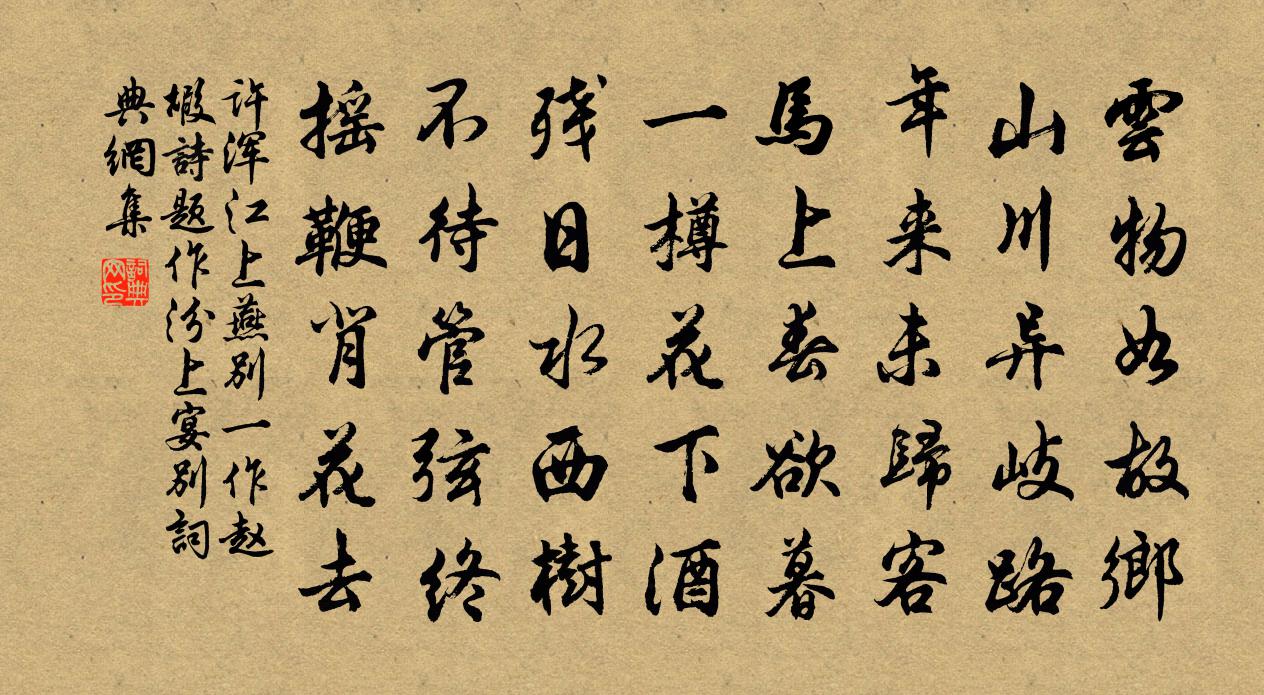 雲物如故鄉
山川异岐路
年来未歸客
馬上春欲暮
一樽花下酒
残日水西樹
不待管弦终
摇鞭背花去
许浑江上燕别一作赵
嘏詩題作汾上宴别詞
典網集
詞典网印